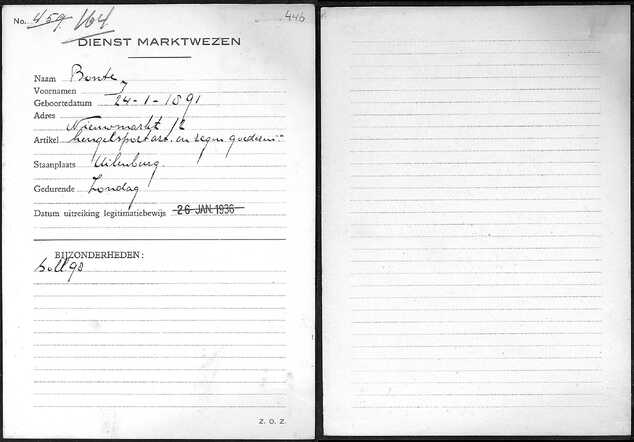 No. 459 164 446
DIENST MARKTWEZEN
Naam Bonte
Voornamen
Geboortedatum 24-1-1891
Adres Nieuwmarkt 12
Artikel hengelsportart. en regen goederen
Staanplaats Uilenburg
Gedurende Zondag
Datum uitreiking legitimatiebewijs 26 JAN. 1936
BIJZONDERHEDEN:
Z. O. Z.